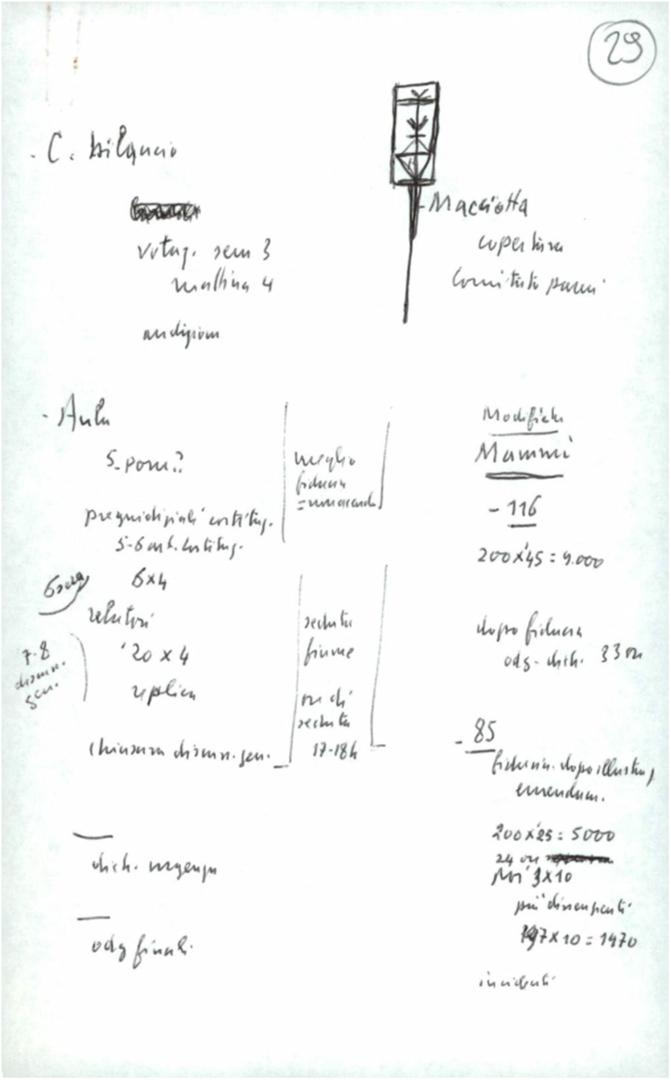 29
- C. bilancio
votaz. sem 3
mattina 4
audizioni
Macciotta
copertura
Comitato pareri
- Aula
5 pom.?
pregiudiziali costituz.
5-6
6x4
6 ore
relatori
20 x 4
7-8
discuss.
gen.
replica
chiusura discuss. gen.
meglio
fiducia
seduta
fiume
ore di
seduta
17-18h
dich. urgenza
odg finali
Modifiche
Mammì
- 116
200x45 = 9.000
dopo fiducia
odg - dich. 33 ore
- 85
fiducia dopo illustraz.
emendam.
200x25 = 5000
24 ore
3x10
più dissenzienti
147x10 = 1470
incidenti